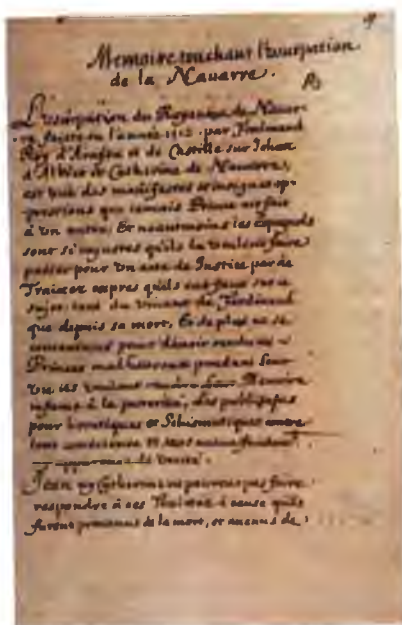 Memoire touchant l'usurpation
de la Nauarre.
L'usurpation du Royaume de Nauar-
re, faicte en l'année 1512. par Ferdinand
Roy d'Aragon et de Castille sur Jehan
d'Albret et Catherine de Nauarre,
est une des manifestes et insignes op-
pressions que iamais Prince ait fait
à un autre. Et neantmoins les espagnols
sont si iniustes qu'ils la veulent faire
passer pour un acte de Justice par de
Traictez expres qu'ils ont faits sur ce
sujet, tant du viuant de Ferdinand
que depuis sa mort. Et de plus ne se
contentans pour d'auoir rendu ces
Princes malheureux pendant leur
vie ils veulent rendre leur Memoire
infame à la posterité, Les publians
pour heretiques et Schismatiques contre
leur conscience et sans aucun fondement
de verité.
Jean ny Catherine ne peurent pas faire
respondre à ces Traictez à cause qu'ils
furent preuenus de la mort, et aucuns de